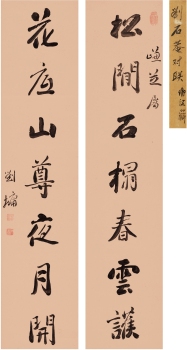 劉石菴對聯
松間石榻春雲護
花底山尊夜月開
劉墉